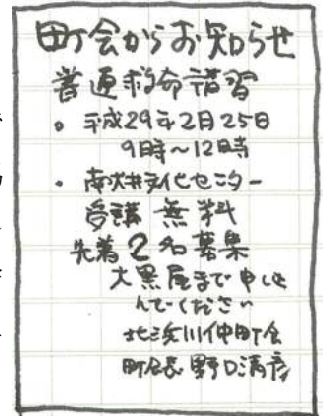 町会からお知らせ
普通救命講習
。平成29年2月25日
9時～12時
・南大井文化センター
受講 無料
先着2名募集
大黒屋まで申し込
んでください
北浜川仲町会
町会長 野口清彦